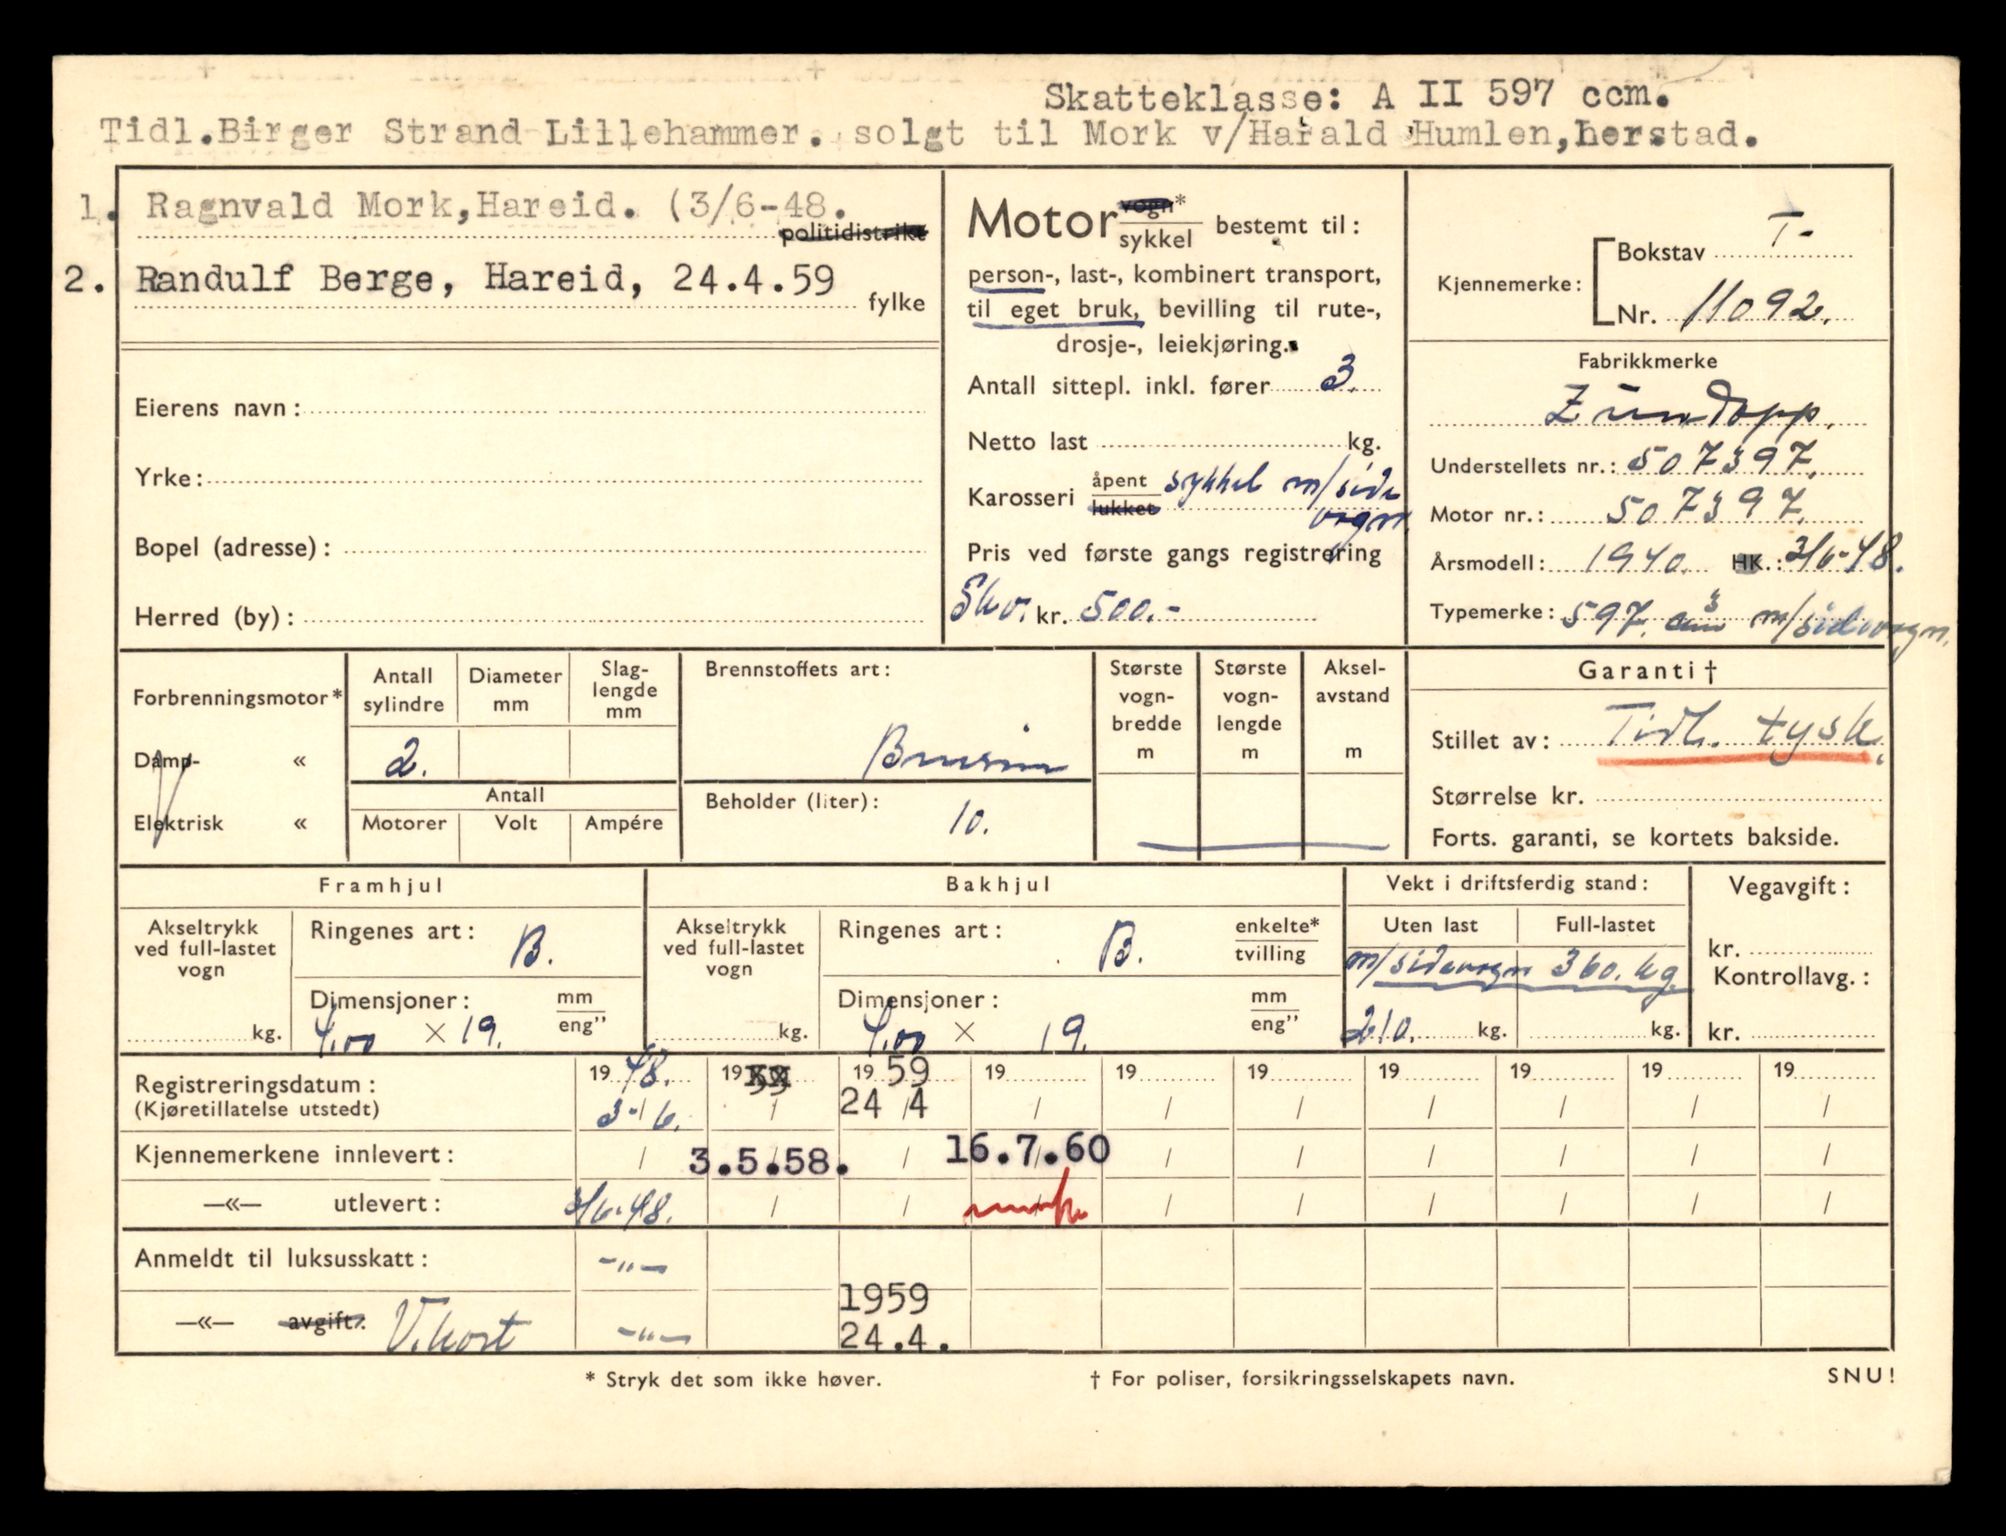 Skatteklasse: A II 597 ccm.
Tidl.Birger Strand Lillehammer. solgt til Mork v/Harald Humlen,herstad.
1. Ragnvald Mork,Hareid. (3/6-48.
politidistrikt
2. Randulf Berge, Hareid, 24.4.59
fylke
Eierens navn:
Yrke:
Bopel (adresse):
Herred (by):
Motor vogn*
sykkel bestemt til:
person-, last-, kombinert transport,
til eget bruk, bevilling til rute-,
drosje-, leiekjøring.
Antall sittepl. inkl. fører 3.
Netto last kg.
Karosseri åpent
lukket sykkel m/side
vogn.
Pris ved første gangs registrering
Skv. kr. 500.-
Kjennemerke: Bokstav T-
Nr. 11092.
Fabrikkmerke
Zündapp.
Understellets nr.: 507397.
Motor nr.: 507397.
Årsmodell: 1940. HK.: 3/6-48.
Typemerke: 597. cm³ m/sidevogn.
Forbrenningsmotor*
Damp- «
Elektrisk «
Antall
sylindre
Diameter
mm
Slag-
lengde
mm
2.
Antall
Motorer Volt Ampére
Brennstoffets art:
Bensin
Beholder (liter):
10.
Største
vogn-
bredde
m
Største
vogn-
lengde
m
Aksel-
avstand
m
Garanti †
Stillet av: Tidl. tysk.
Størrelse kr.
Forts. garanti, se kortets bakside.
Framhjul
Akseltrykk
ved full-lastet
vogn
kg.
Ringenes art: B.
Dimensjoner: mm
eng”
4.00 × 19.
Bakhjul
Akseltrykk
ved full-lastet
vogn
kg.
Ringenes art: B. enkelte*
tvilling
Dimensjoner: mm
eng”
4.00 × 19.
Vekt i driftsferdig stand:
Uten last Full-lastet
m/sidevogn 360. kg.
210. kg. kg.
Vegavgift:
kr.
Kontrollavg.:
kr.
Registreringsdatum: 19 48. 19 19 59 19 19 19 19 19 19 19
(Kjøretillatelse utstedt) 3-/6. / 24 / 4 / / / / / / /
Kjennemerkene innlevert: / 3.5.58. / 16.7.60 / / / / / /
—«— utlevert: 3/6-48. / / / / / / / / /
Anmeldt til luksusskatt: -"-
—«— avgift: V.kort -"- 1959
24.4.
* Stryk det som ikke høver.
† For poliser, forsikringsselskapets navn.
SNU!